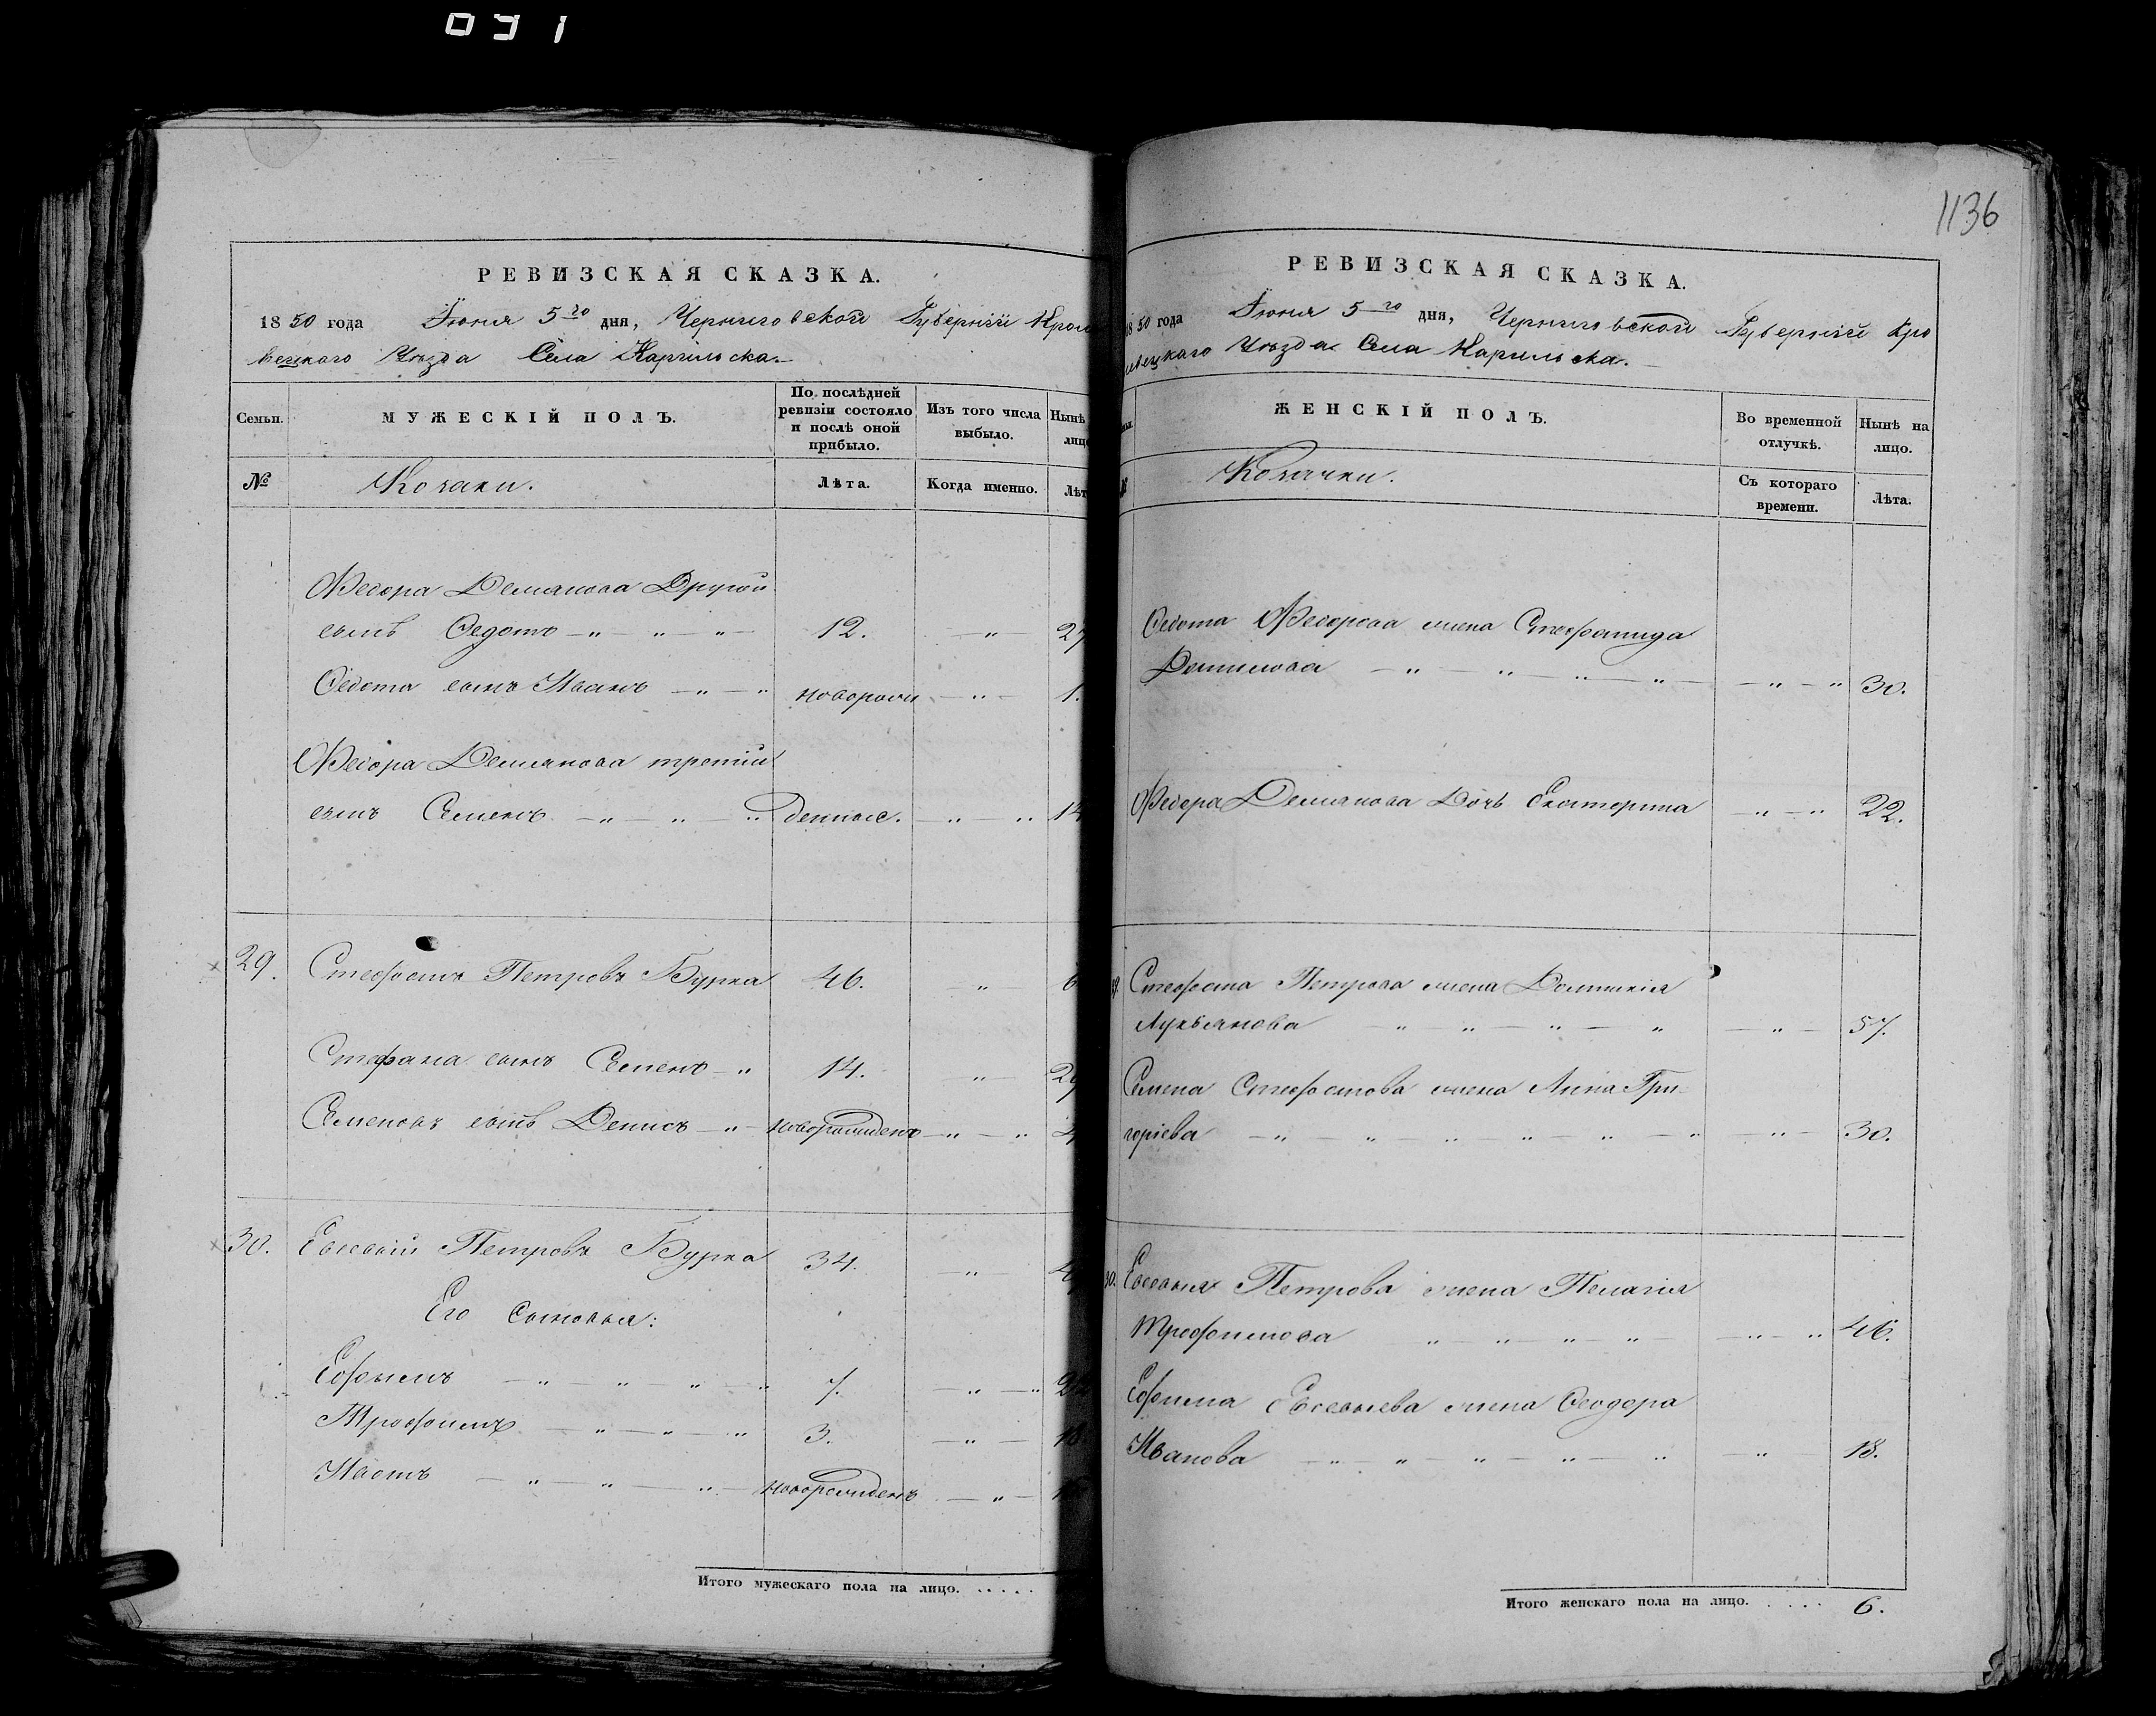 031
РЕВИЗСКАЯ СКАЗКА.
1850 года Іюня 5го дня, Черниговской Губерніи Крол
вецкаго Уѣзда Села Карильска.
Семьи.
МУЖЕСКІЙ ПОЛЪ.
По послѣдней ревизіи состояло и послѣ оной прибыло.
Изъ того числа выбыло.
Нынѣ
лицо
№
Козаки.
Лѣта.
Когда именно.
Лѣт
Федора Демянова Другой
сынъ Федотъ 12. 27
Федота сынъ Иванъ новорожд 1.
Федора Демянова третій
сынъ Семенъ 14
29. Стефанъ Петровъ Бурка 46. 6
Стефана сынъ Семенъ 14. 29
Семеновъ сынъ Денисъ новорожденъ 4
30. Евсевій Петровъ Бурка 34. 4
Его сыновья:
Ефимъ 7. 2
Трофимъ 3. 18
новорожденъ 1
Итого мужескаго пола на лицо. . . . . .
1136
РЕВИЗСКАЯ СКАЗКА.
1850 года Іюня 5го дня, Черниговской Губерніи Кро
левецкаго Уѣзда Села Карильска.
ЖЕНСКІЙ ПОЛЪ.
Во временной отлучкѣ.
Нынѣ на лицо.
Козачки.
Съ котораго времени.
Лѣта.
Федота Федорова жена Стефанида
30.
Федора Демянова Дочь Екатерина 22.
Стефана Петрова жена Домникія
Лукьянова 57.
Семена Стефанова жена Анна Гри-
горіева 30.
30. Евсевія Петрова жена Пелагія
Трофимова 46.
Ефима Евсевіева жена Феодора
Иванова 18.
Итого женскаго пола на лицо. . . . . 6.